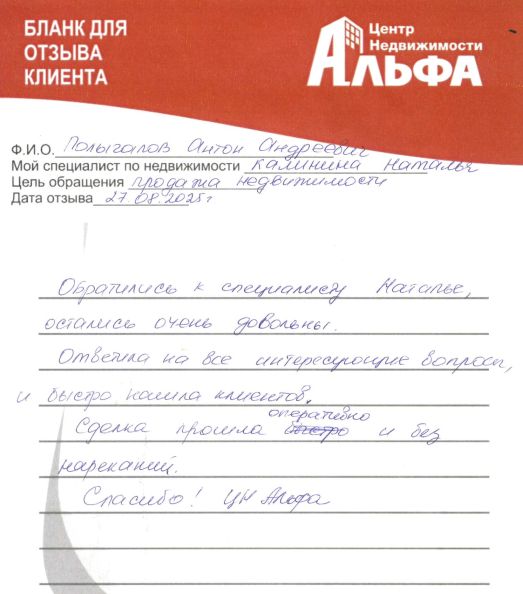 БЛАНК ДЛЯ
ОТЗЫВА
КЛИЕНТА
Центр
Недвижимости
АЛЬФА
Ф.И.О. Полыгалов Антон Андреевич
Мой специалист по недвижимости Калинина Наталья
Цель обращения продажа недвижимости
Дата отзыва 27.08.2025г
Обратились к специалисту Наталье,
остались очень довольны.
Ответила на все интересующие вопросы,
и быстро нашла клиентов.
оперативно
Сделка прошла быстро и без
нареканий.
Спасибо! ЦН Альфа